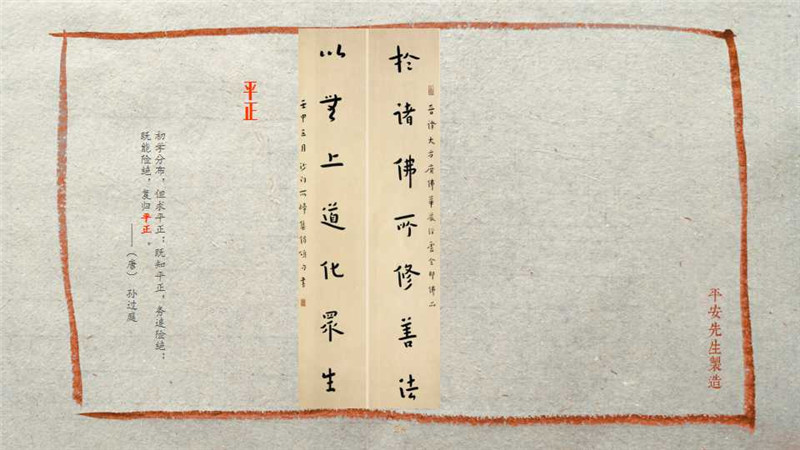 平安先生製造
於諸佛所修善法
以無上道化眾生
壬申五月
平正
初学分布，但求平正；既知平正，务追险绝；
既能险绝，复归平正。
——（唐） 孙过庭